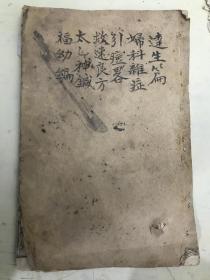 達生篇
婦科雜症
引痘畧
救迷良方
太乙神鍼
福幼編